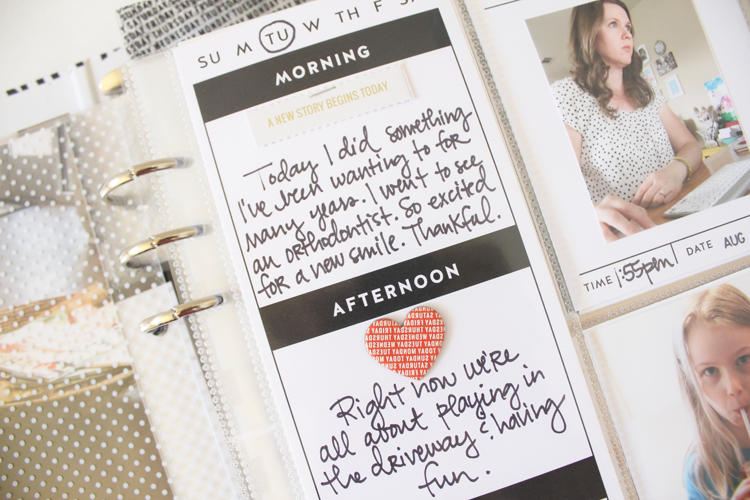 SU M TU W TH F S
MORNING
A NEW STORY BEGINS TODAY
Today I did something
I've been wanting to for
many years. I went to see
an orthodontist. So excited
for a new smile. Thankful.
AFTERNOON
Right now we're
all about playing in
the driveway & having
fun.
TIME :55pm DATE AUG